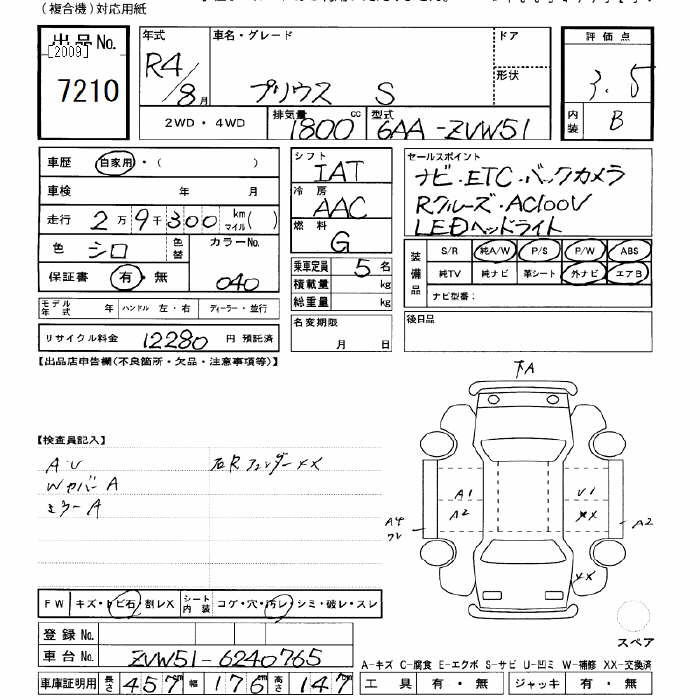 (複合機)対応用紙
出品No.
[2009]
7210
年式 R4/8月
車名・グレード プリウス S
ドア
形状
2WD・4WD
排気量 1800 cc
型式 6AA-ZVW51
評価点 3.5
内装 B
車歴 自家用・( )
車検 年 月
走行 2万9千300 km マイル( )
色 シロ 色替 カラーNo. 040
保証書 有・無
モデル年式 年 ハンドル 左・右 ディーラー・並行
リサイクル料金 12280 円 預託済
シフト IAT
冷房 AAC
燃料 G
乗車定員 5名
積載量 kg
総重量 kg
名変期限 月 日
セールスポイント
ナビ・ETC・バックカメラ
Rクルーズ・AC100V
LEDヘッドライト
装備品 S/R 純A/W P/S P/W ABS
純TV 純ナビ 革シート 外ナビ エアB
ナビ型番:
後日品
【出品店申告欄(不良箇所・欠品・注意事項等)】
下A
【検査員記入】
A・U 右Rフェンダー××
Wカバー A
ミラーA
A1
A2
U1
××
A4
A2
××
FW キズ・トビ石・割レX シート内装 コゲ・穴・汚レ・シミ・破レ・スレ
スペア
登録No.
車台No. ZVW51-6240765
A-キズ C-腐食 E-エクボ S-サビ U-凹ミ W-補修 XX-交換済
車庫証明用 長さ 457 幅 176 高さ 147
工具 有・無 ジャッキ 有・無